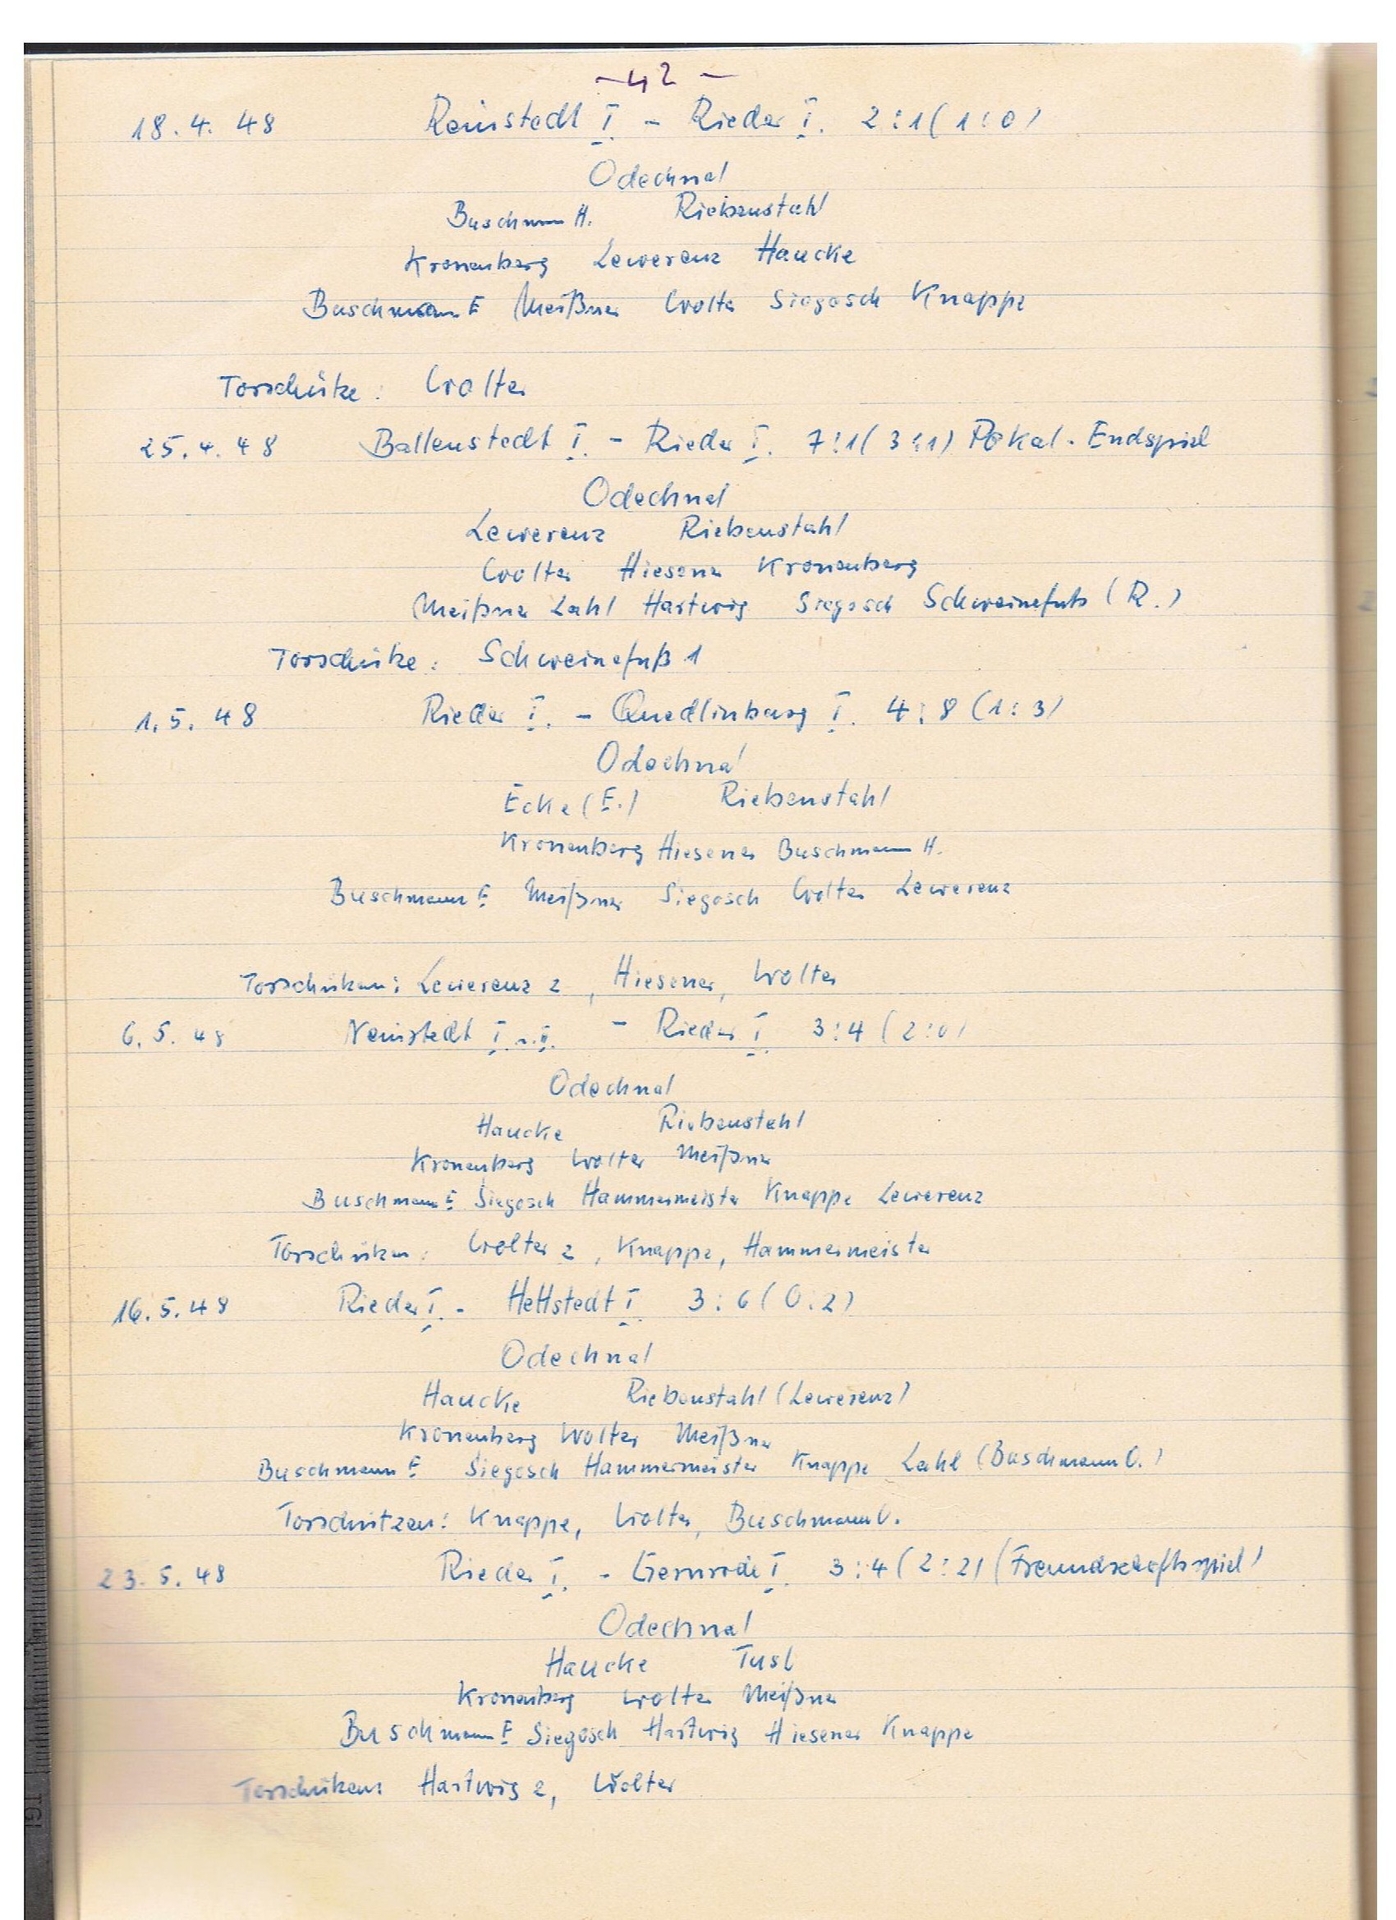 - 42 -
18. 4. 48 Reinstedt I. - Rieder I. 2:1 (1:0)
Odechnal
Buschmann H. Riebenstahl
Kronenberg Lewerenz Haucke
Buschmann E Meißner Wolter Siegosch Knappe
Torschütze: Wolter
25. 4. 48 Ballenstedt I. - Rieder I. 7:1 (3:1) Pokal-Endspiel
Odechnal
Lewerenz Riebenstahl
Wolter Hiesener Kronenberg
Meißner Lahl Hartwig Siegosch Schweinefuß (R.)
Torschütze: Schweinefuß 1
1. 5. 48 Rieder I. - Quedlinburg I. 4:8 (1:3)
Odechnal
Ecke (E.) Riebenstahl
Kronenberg Hiesener Buschmann H.
Buschmann E. Meißner Siegosch Wolter Lewerenz
Torschützen: Lewerenz 2, Hiesener, Wolter
6. 5. 48 Neinstedt I. u. II. - Rieder I. 3:4 (2:0)
Odechnal
Haucke Riebenstahl
Kronenberg Wolter Meißner
Buschmann E Siegosch Hammermeister Knappe Lewerenz
Torschützen: Wolter 2, Knappe, Hammermeister
16. 5. 48 Rieder I. - Hettstedt I. 3:6 (0:2)
Odechnal
Haucke Riebenstahl (Lewerenz)
Kronenberg Wolter Meißner
Buschmann E Siegosch Hammermeister Knappe Lahl (Buschmann O.)
Torschützen: Knappe, Wolter, Buschmann O.
23. 5. 48 Rieder I. - Gernrode I. 3:4 (2:2) (Freundschaftsspiel)
Odechnal
Haucke Tusl
Kronenberg Wolter Meißner
Buschmann E Siegosch Hartwig Hiesener Knappe
Torschützen: Hartwig 2, Wolter